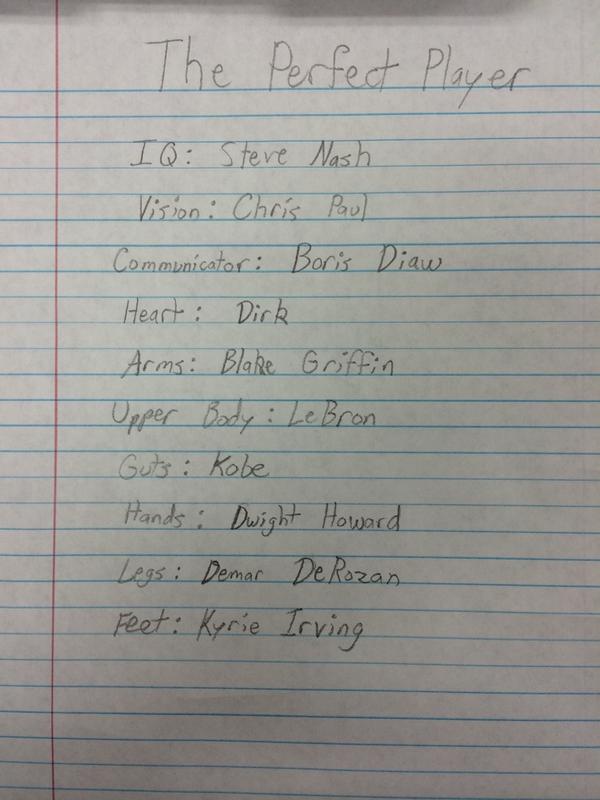 The Perfect Player
IQ: Steve Nash
Vision: Chris Paul
Communicator: Boris Diaw
Heart: Dirk
Arms: Blake Griffin
Upper Body: LeBron
Guts: Kobe
Hands: Dwight Howard
Legs: Demar DeRozan
Feet: Kyrie Irving